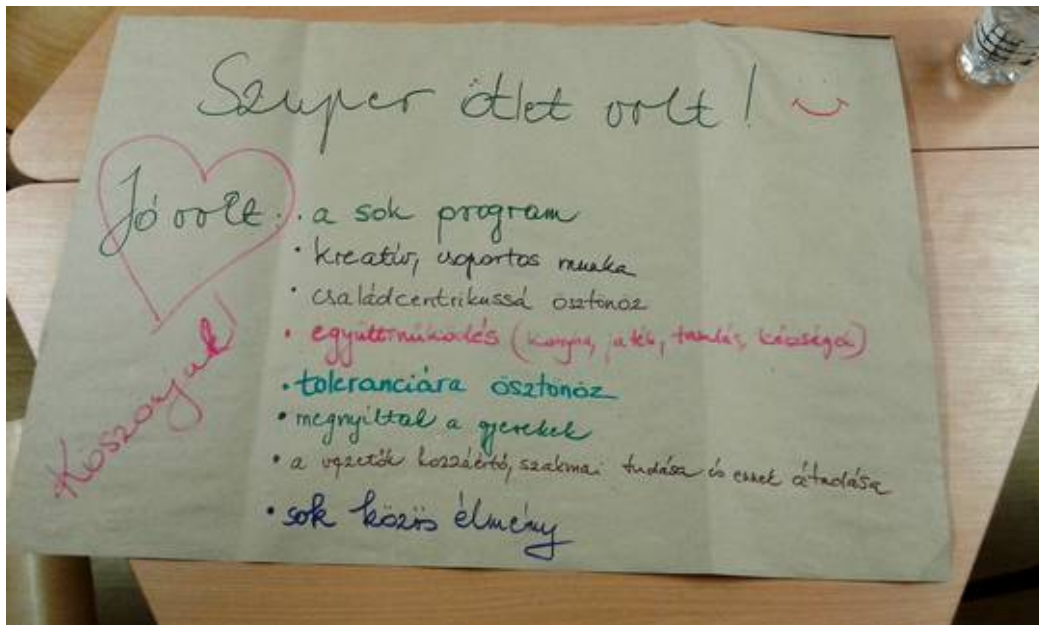 Szuper ötlet volt!
Jó volt:
• a sok program
• kreatív, csoportos munka
• családcentrikussá ösztönöz
• együttműködés (konyha, játék, tanulás, közösségi)
• toleranciára ösztönöz
• megnyíltak a gyerekek
• a vezetők hozzáértő, szakmai tudása és ennek átadása
• sok közös élmény
Köszönjük!